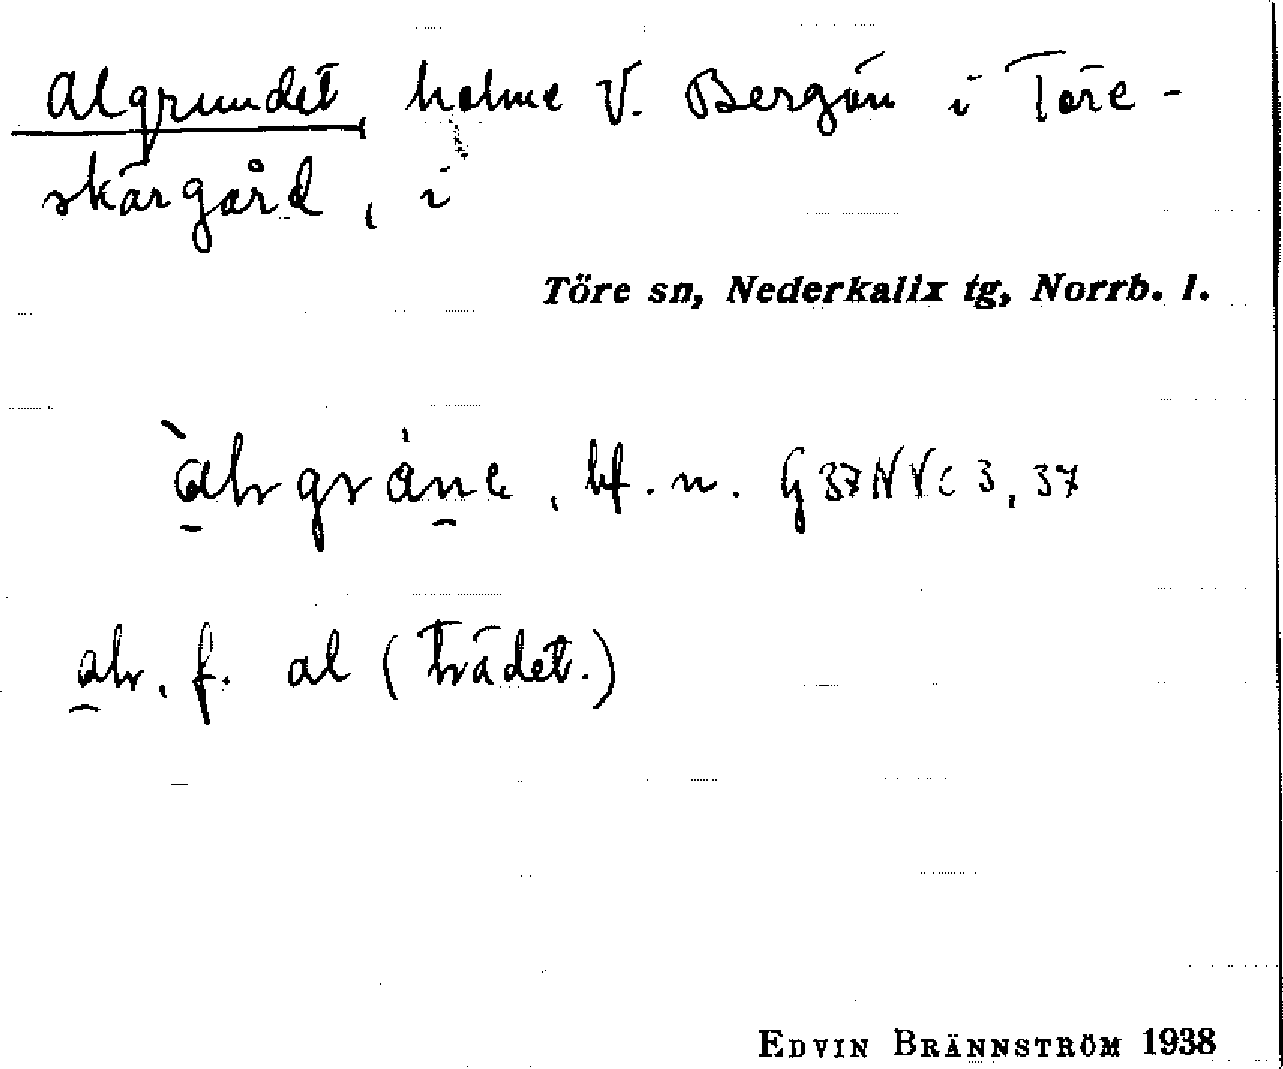 Algrundet, holme V. Bergön i Töre-
skärgård, i
Töre sn, Nederkalix tg, Norrb. l.
bf. n. G37NVc3, 37
f. al (trädet.)
EDVIN BRÄNNSTRÖM 1938